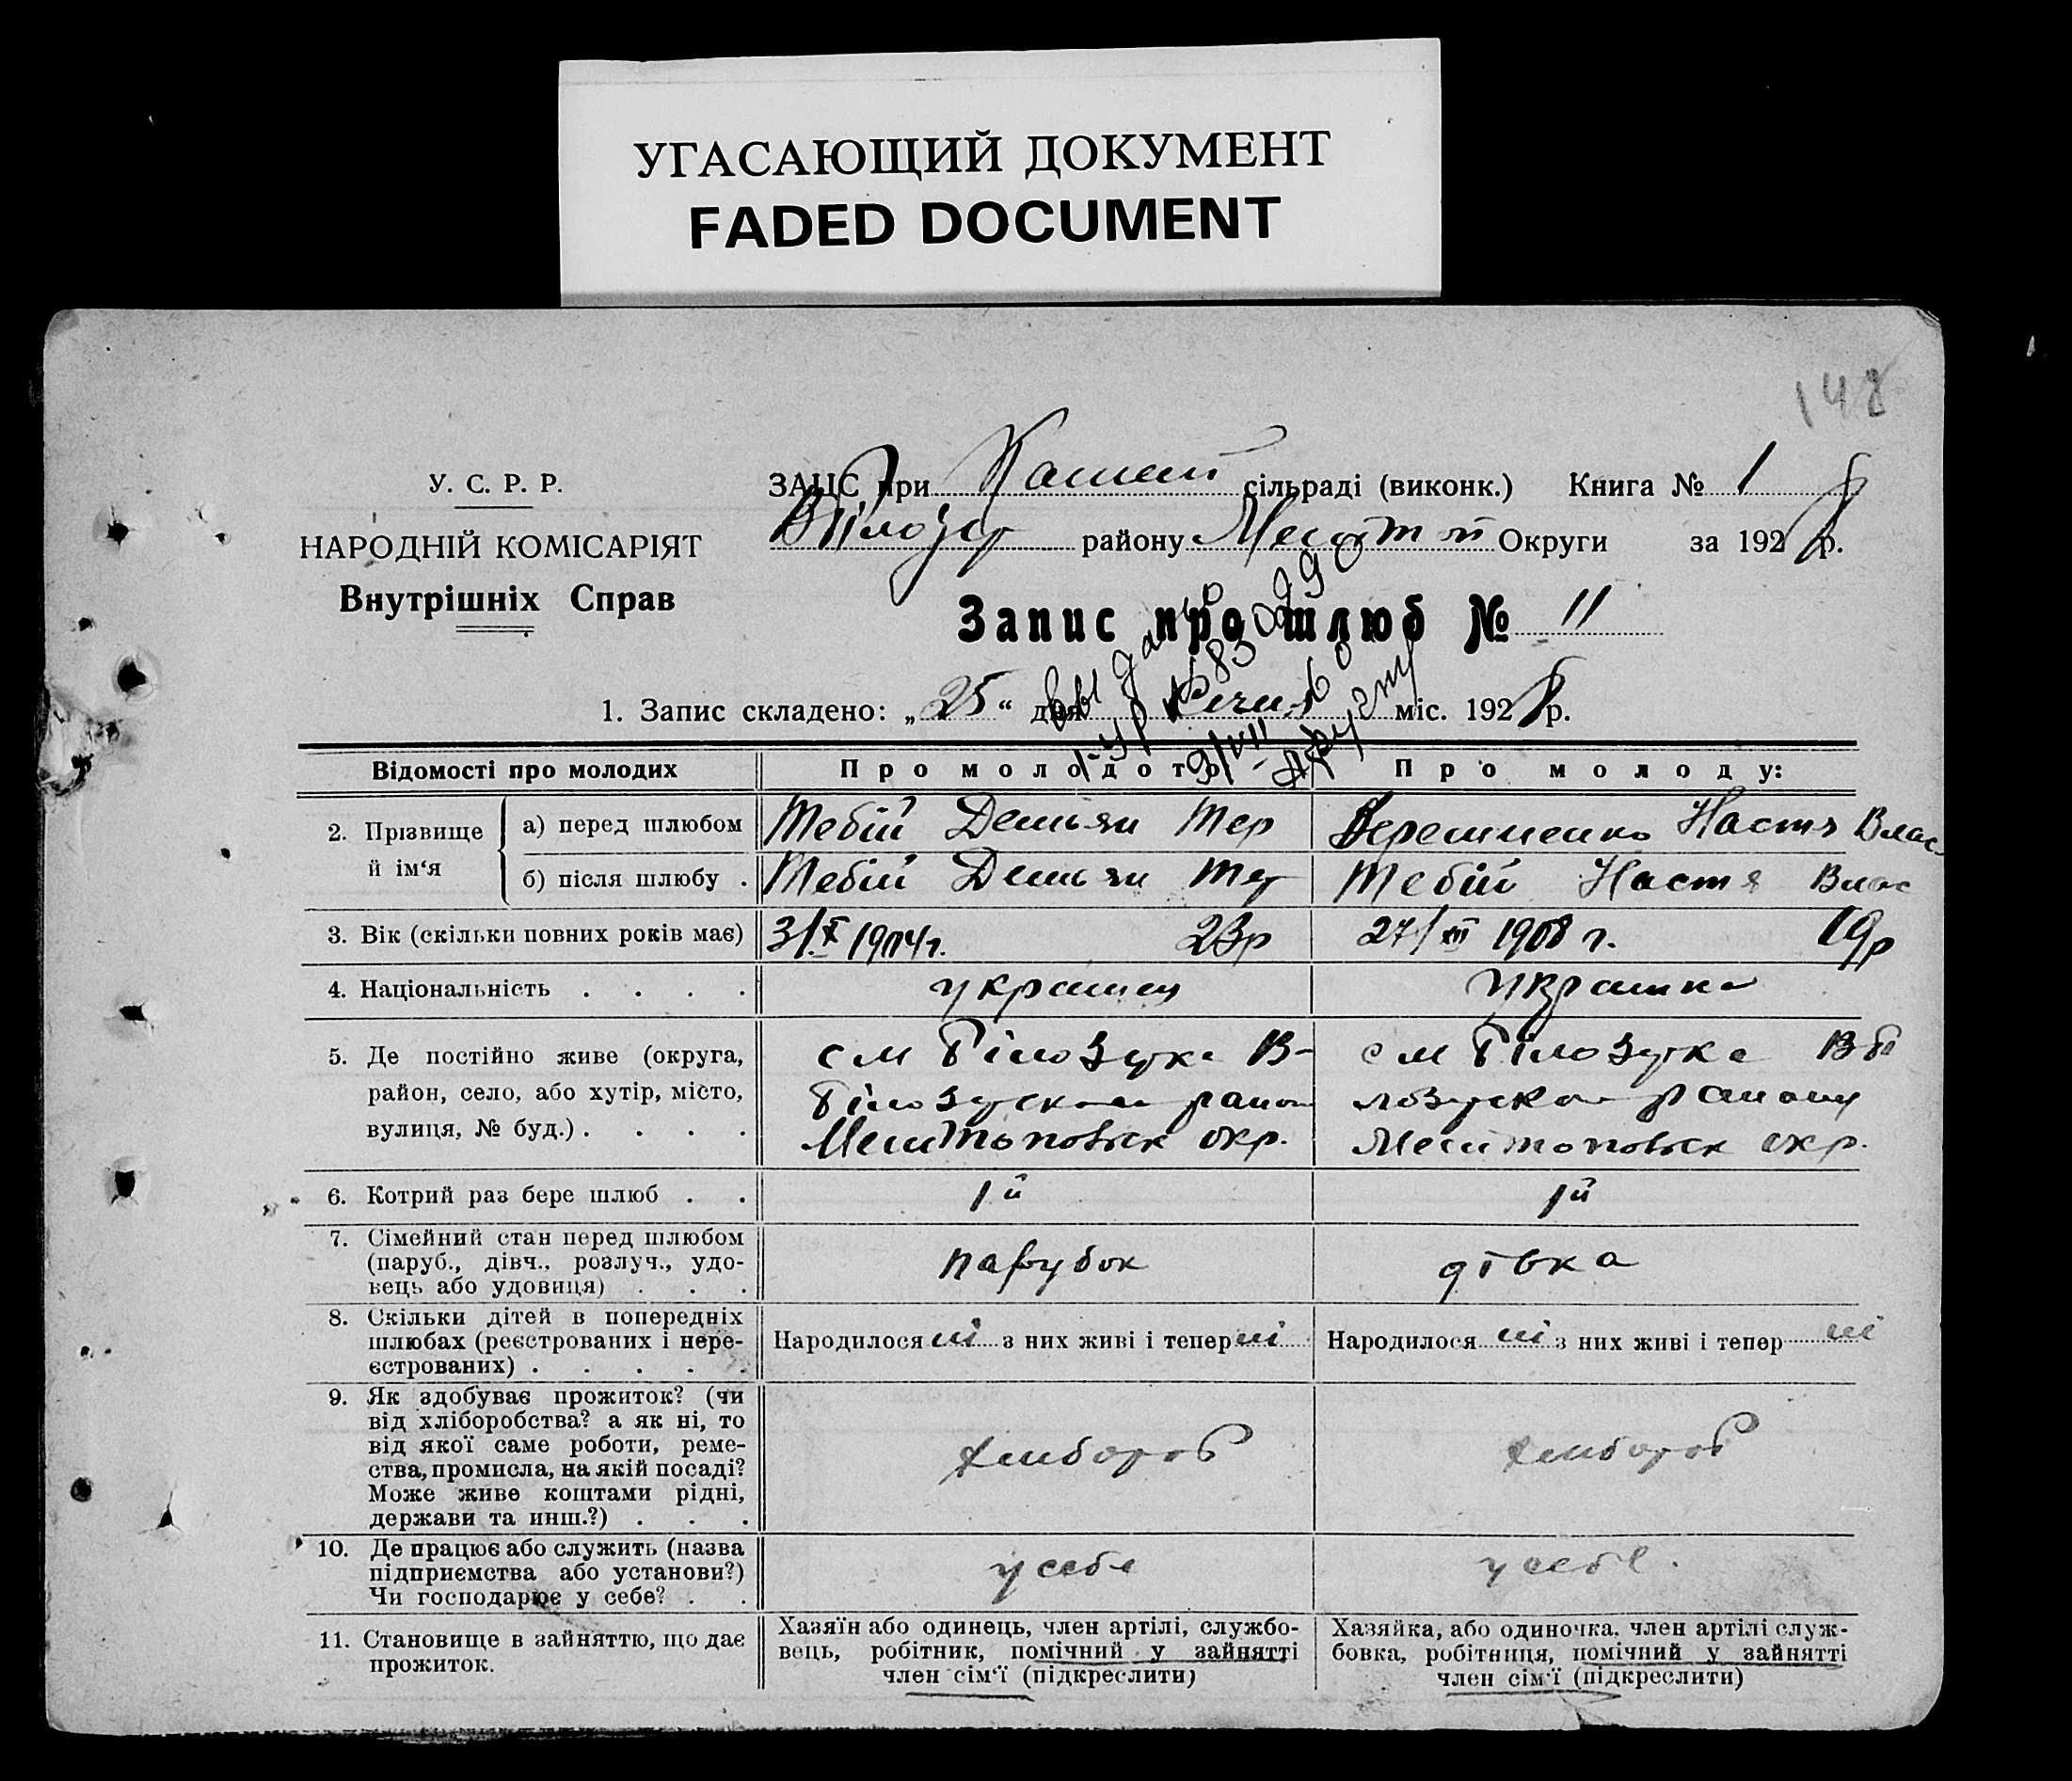 УГАСАЮЩИЙ ДОКУМЕНТ
FADED DOCUMENT
148
У. С. Р. Р.
НАРОДНІЙ КОМІСАРІЯТ
Внутрішніх Справ
ЗАЦС при сільраді (виконк.) Книга № 1
В Білозер району Меліт ой Округи за 1928 р.
Запис про шлюб № 11
1. Запис складено: „25“ дня Січня міс. 1928 р.
Відомості про молодих
Про молодого
Про молоду:
2. Прізвище й ім‘я
а) перед шлюбом
Тебій Демьян Тер
Настя Влас
б) після шлюбу .
Тебій Демьян Тер
Тебій Настя Влас
3. Вік (скільки повних років має)
3/X 1904 г. 23р
27/ 1908 г. 19р
4. Національність . . . .
украинец
украинка
5. Де постійно живе (округа,
район, село, або хутір, місто,
вулиця, № буд.) . . . .
см Білозерка В-
Білозерског район
Мелитопольск окр.
см Білозерка В Бі
лозерског району
Мелитопольск окр.
6. Котрий раз бере шлюб . .
1й
1й
7. Сімейний стан перед шлюбом
(паруб., дівч., розлуч., удо-
вець або удовиця) . . .
парубок
дівка
8. Скільки дітей в попередніх
шлюбах (реєстрованих і нере-
єстрованих) . . . . .
Народилося ні з них живі і тепер ні
Народилося ні з них живі і тепер ні
9. Як здобуває прожиток? (чи
від хліборобства? а як ні, то
від якої саме роботи, реме-
ства, промисла, на якій посаді?
Може живе коштами рідні,
держави та инш.?) . . .
хлибороб
хлибороб
10. Де працює або служить (назва
підприємства або установи?)
Чи господарює у себе? . .
у себе
у себе.
11. Становище в зайняттю, що дає
прожиток.
Хазяїн або одинець, член артілі, службо-
вець, робітник, помічний у зайнятті
член сім‘ї (підкреслити)
Хазяйка, або одиночка, член артілі служ-
бовка, робітниця, помічний у зайнятті
член сім‘ї (підкреслити)